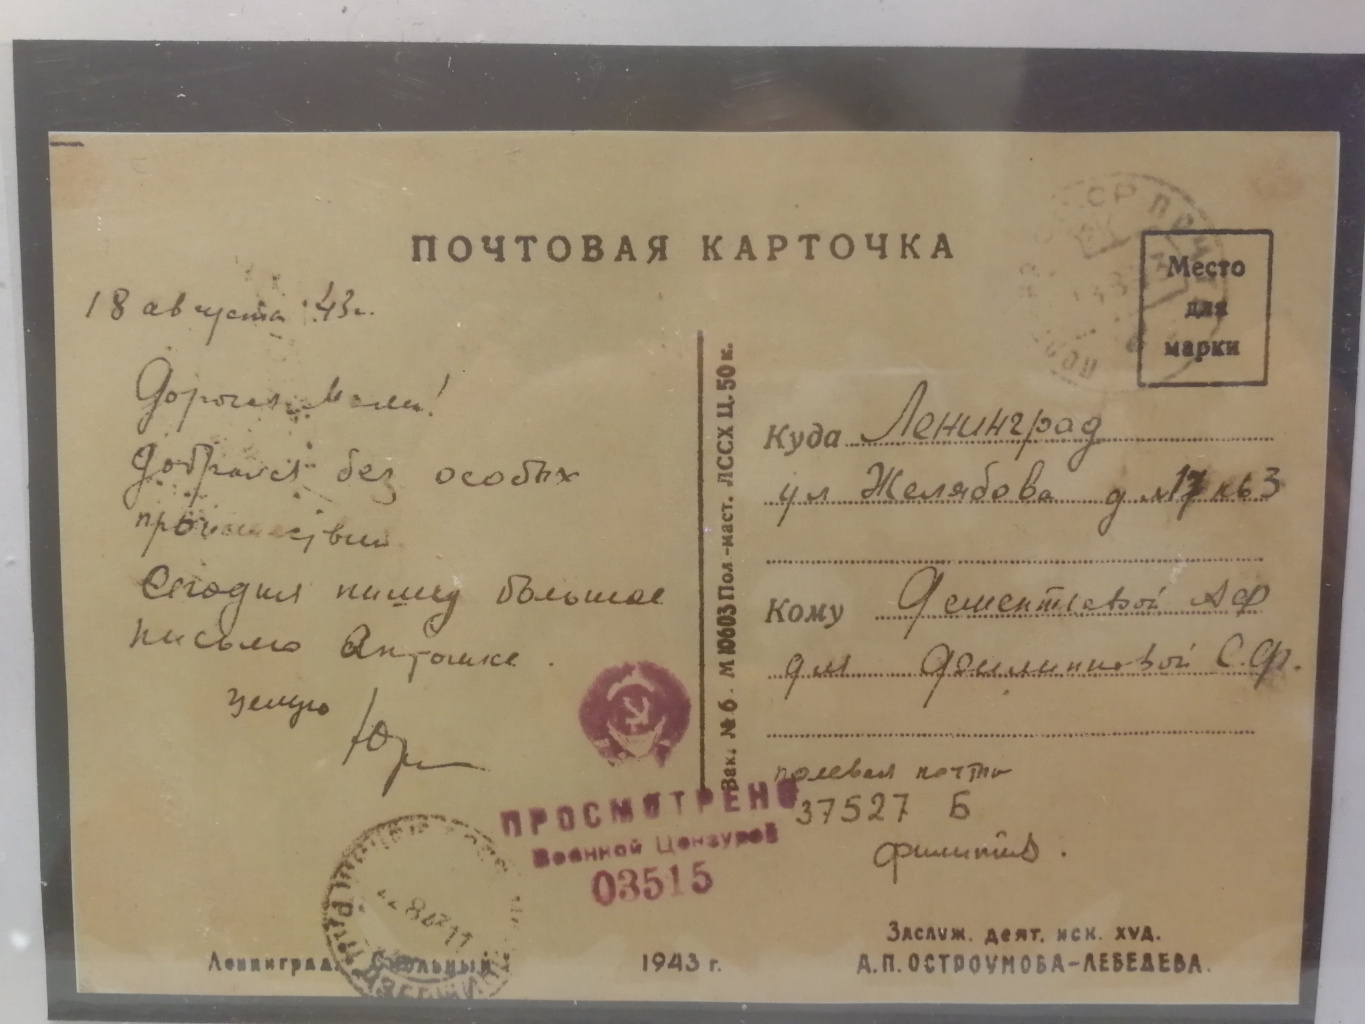 ПОЧТОВАЯ КАРТОЧКА
Место
для
марки
18 августа 43 г.
Дорогая Мали!
Добрался без особых
происшествий
Сегодня пишу большое
письмо Антошке.
целую
Юр
Зак. № 6. М 10603 Пол-маст. ЛССХ Ц. 50 к.
Куда Ленинград
ул Желябова д № 17 кв 3
Кому Дементьевой А Ф
для Филипповой С.Ф.
полевая почта
37527 Б
Филиппов.
ПРОСМОТРЕНО
Военной Цензурой
03515
22 8 43 11
Ленинград. Смольный
1943 г.
Заслуж. деят. иск. худ.
А.П. ОСТРОУМОВА-ЛЕБЕДЕВА.